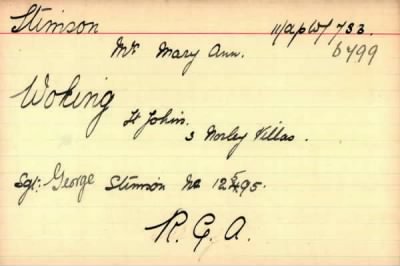 Stimson 11/ap W/ 733.
Mrs Mary Ann. 6499
Woking
St Johns.
3 Morley Villas.
Sgt: George Stimson No 12495.
R.G.A.